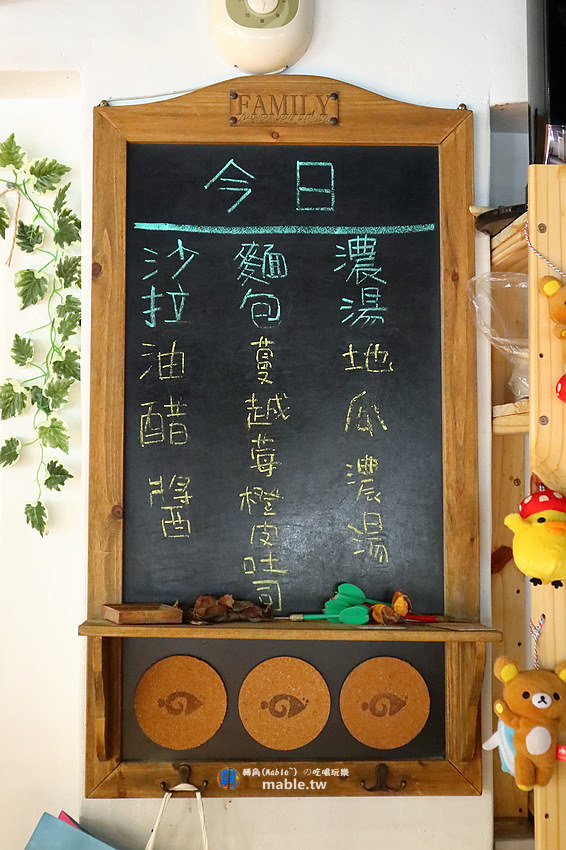 FAMILY
今日
濃湯
地瓜濃湯
麵包
蔓越莓橙皮吐司
沙拉
油醋醬
轉角(Mable~) の吃喝玩樂
mable.tw